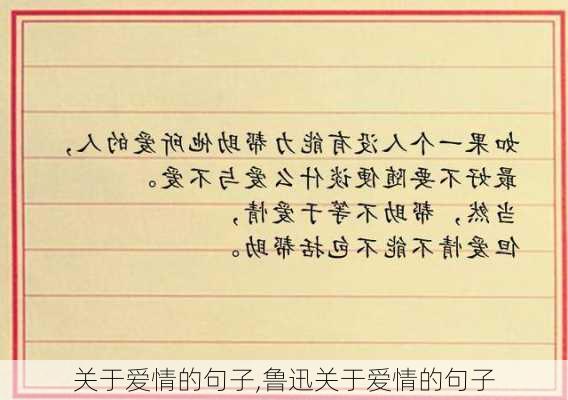 如果一个人没有能力帮助他所爱的人，
最好不要随便谈什么爱与不爱。
当然，帮助不等于爱情，
但爱情不能不包括帮助。
关于爱情的句子,鲁迅关于爱情的句子